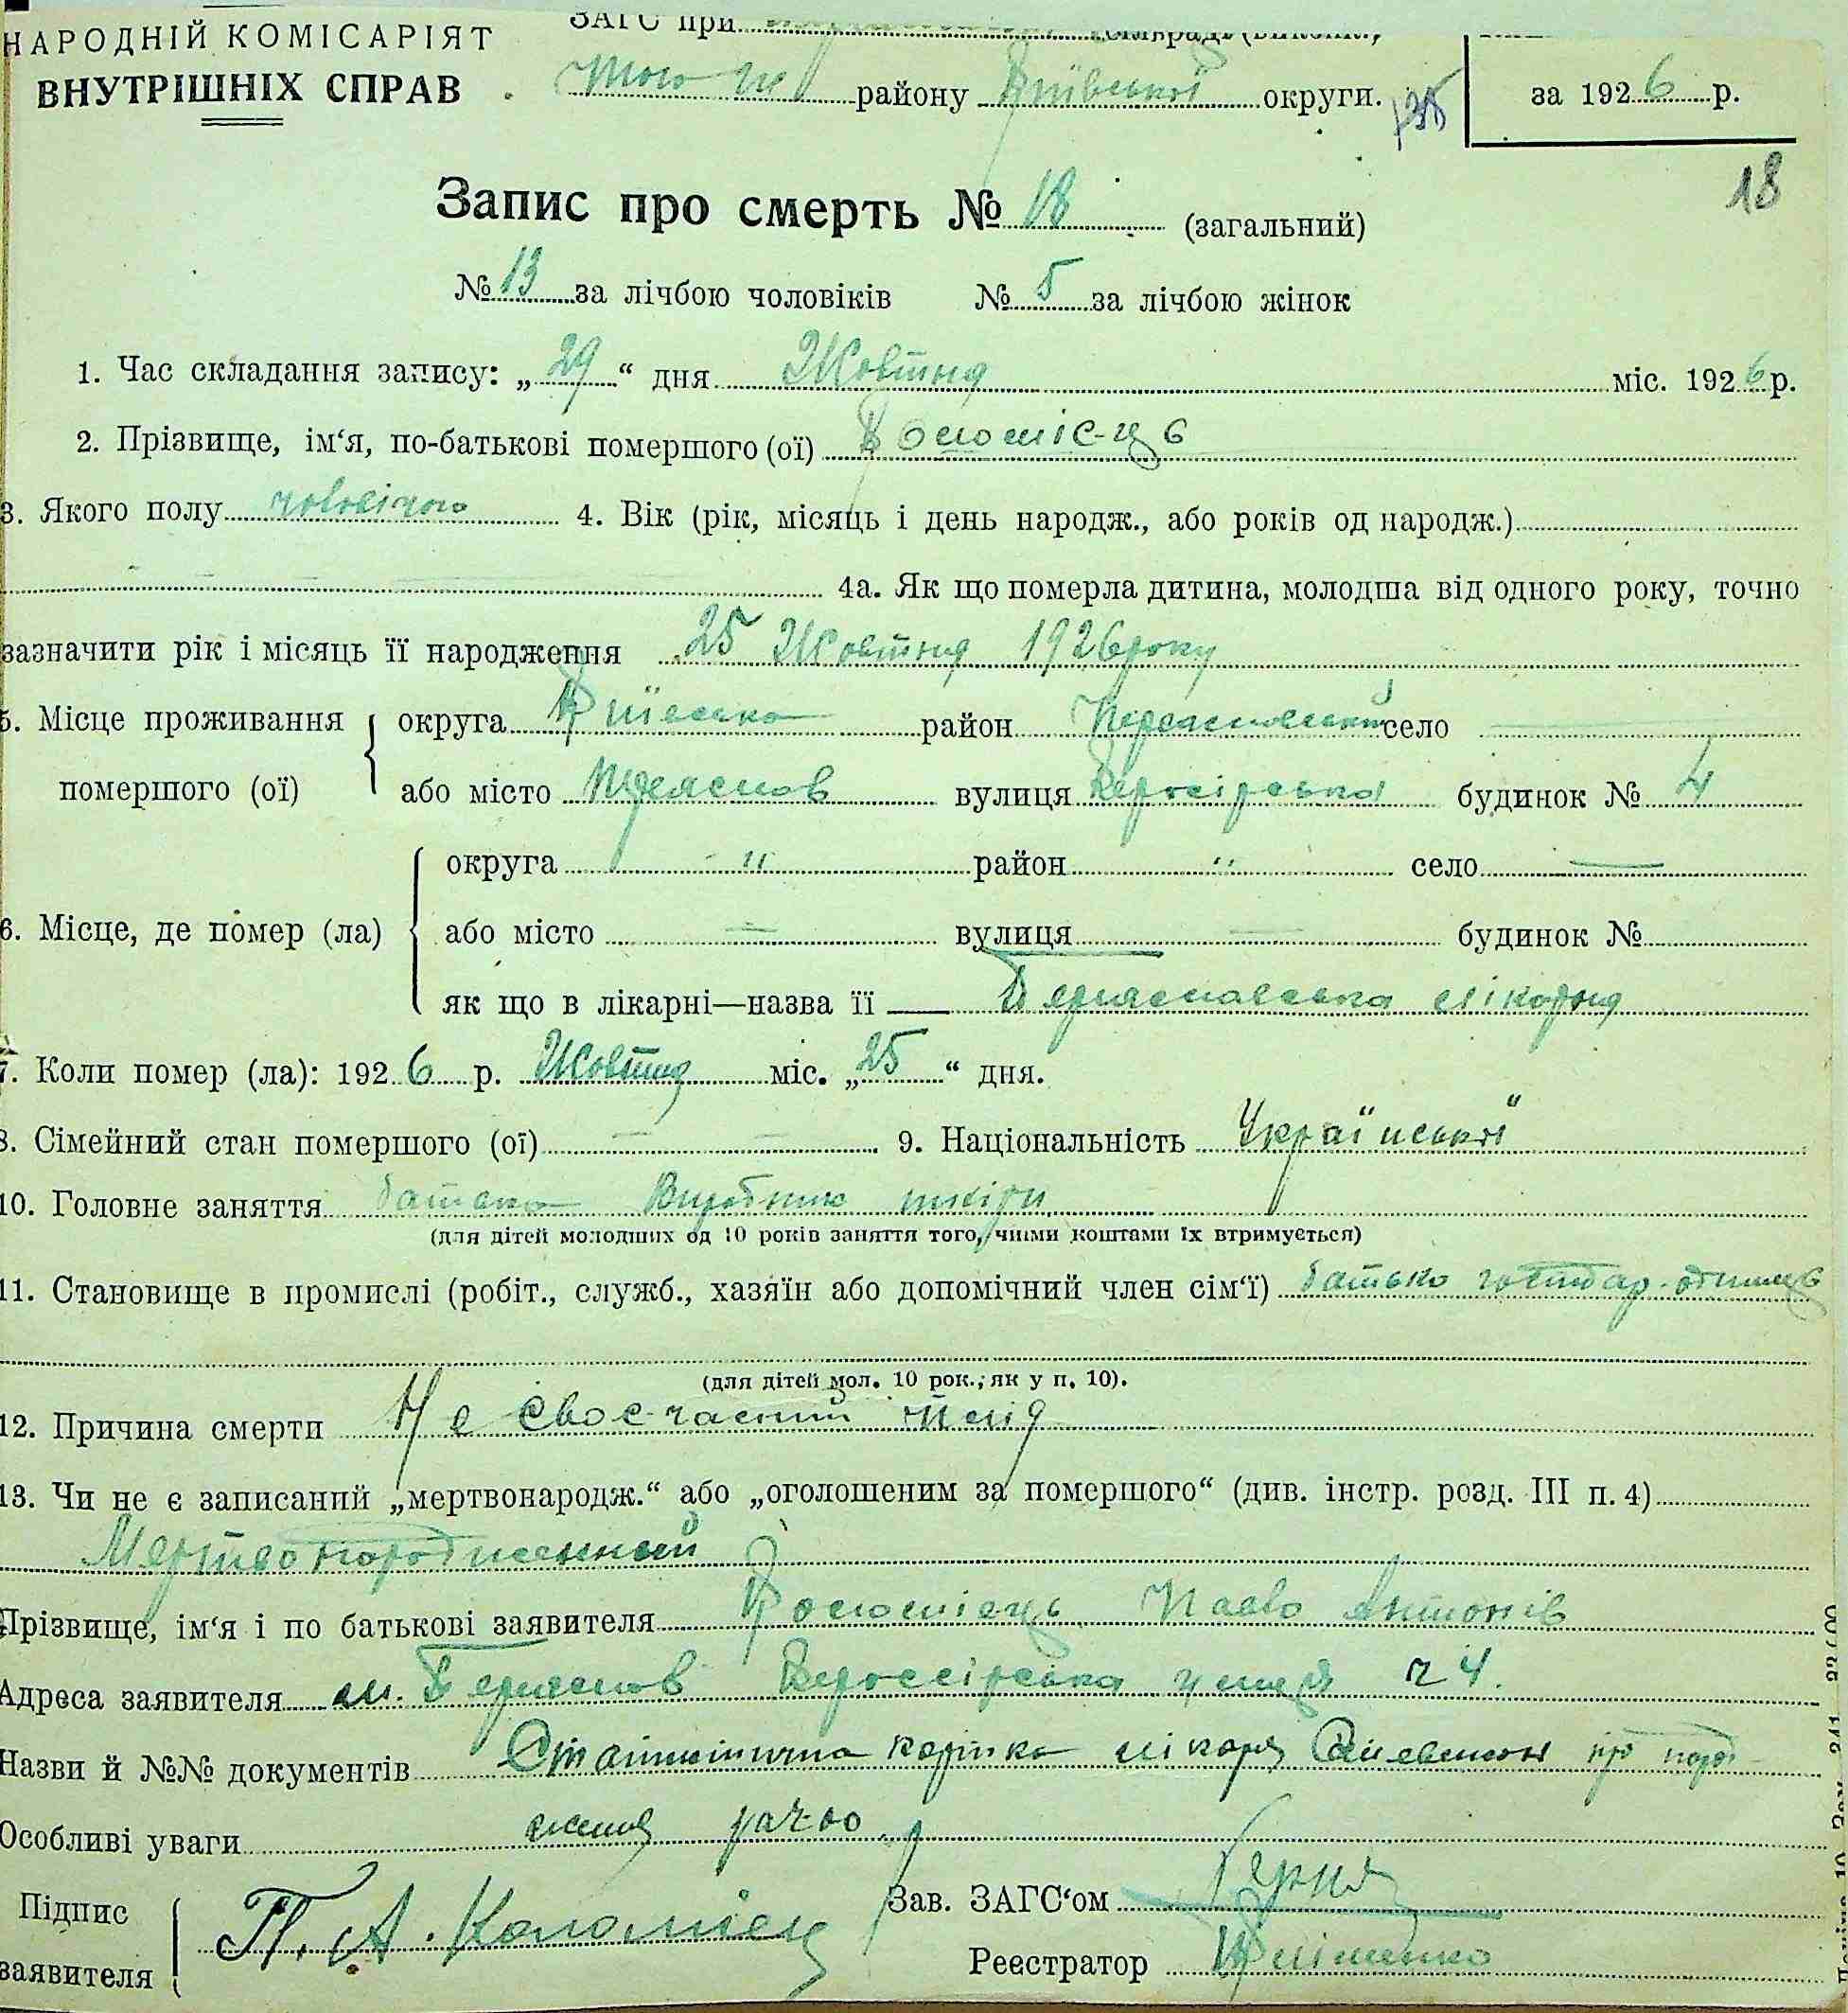 НАРОДНІЙ КОМІСАРІЯТ
ВНУТРІШНІХ СПРАВ
ЗАГС при
Того ж району Київської округи.
за 1926 р.
18
Запис про смерть № 18 (загальний)
№ 13 за лічбою чоловіків № 5 за лічбою жінок
1. Час складання запису: „29“ дня Жовтня міс. 1926 р.
2. Прізвище, ім‘я, по-батькові помершого (ої) Коломієць
3. Якого полу чоловічого 4. Вік (рік, місяць і день народж., або років од народж.)
4а. Як що померла дитина, молодша від одного року, точно
зазначити рік і місяць її народження 25 Жовтня 1926 року
5. Місце проживання помершого (ої) округа Київська район Переяславський село —
або місто Переяслов вулиця будинок № 4
6. Місце, де помер (ла) округа — " — район " село —
або місто — вулиця — будинок №
як що в лікарні—назва її Переяславська лікарня
7. Коли помер (ла): 1926 р. Жовтня міс. „25“ дня.
8. Сімейний стан помершого (ої) — — 9. Національність Української
10. Головне заняття батько Виробник шкіри
(для дітей молодших од 10 років заняття того, чиїми коштами їх втримується)
11. Становище в промислі (робіт., служб., хазяїн або допомічний член сім‘ї) батько господар-одинець
(для дітей мол. 10 рок., як у п. 10).
12. Причина смерти Не своєчасний плід
13. Чи не є записаний „мертвонародж.“ або „оголошеним за помершого“ (див. інстр. розд. III п. 4)
Мертвонароджений
Прізвище, ім‘я і по батькові заявителя Коломієць Павло Антонів
Адреса заявителя м. Переяслов вулиця ч 4.
Назви й №№ документів Статистична картка лікаря про народ-
Особливі уваги ження
Підпис заявителя П. А. Коломієц
Зав. ЗАГС‘ом
Реєстратор